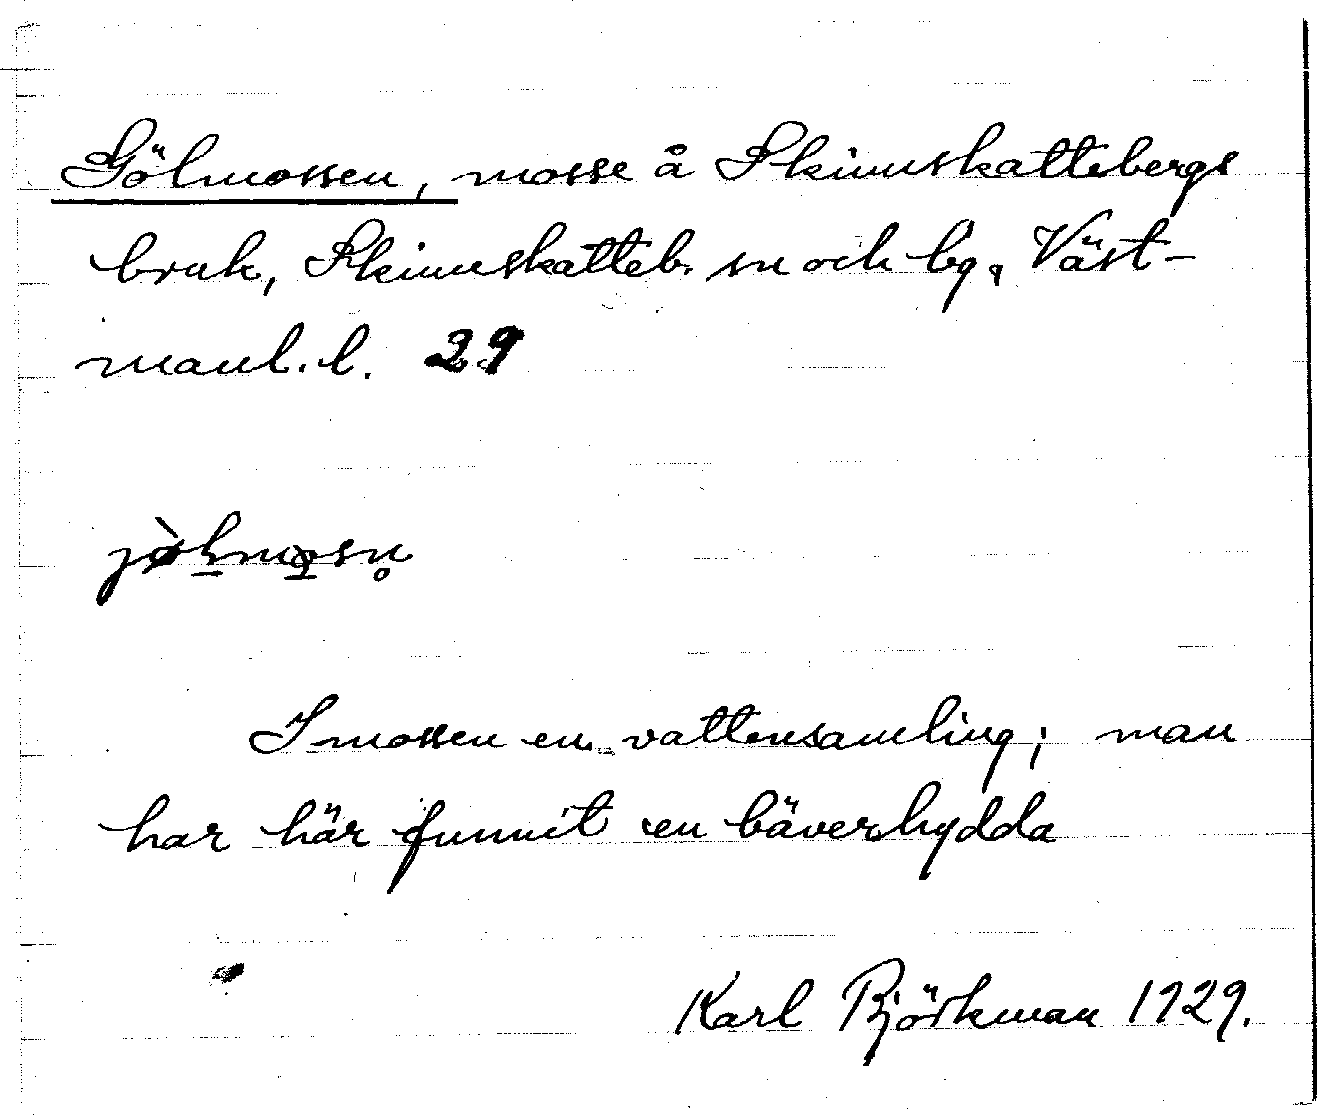 Gölmossen, mosse å Skinnskattebergs
bruk, Skinnskatteb. sn och bg, Väst-
manl. l. 29
jø̀lmo̱sn̥
I mossen en vattensamling; man
har här funnit en bäverhydda
Karl Björkman 1929.